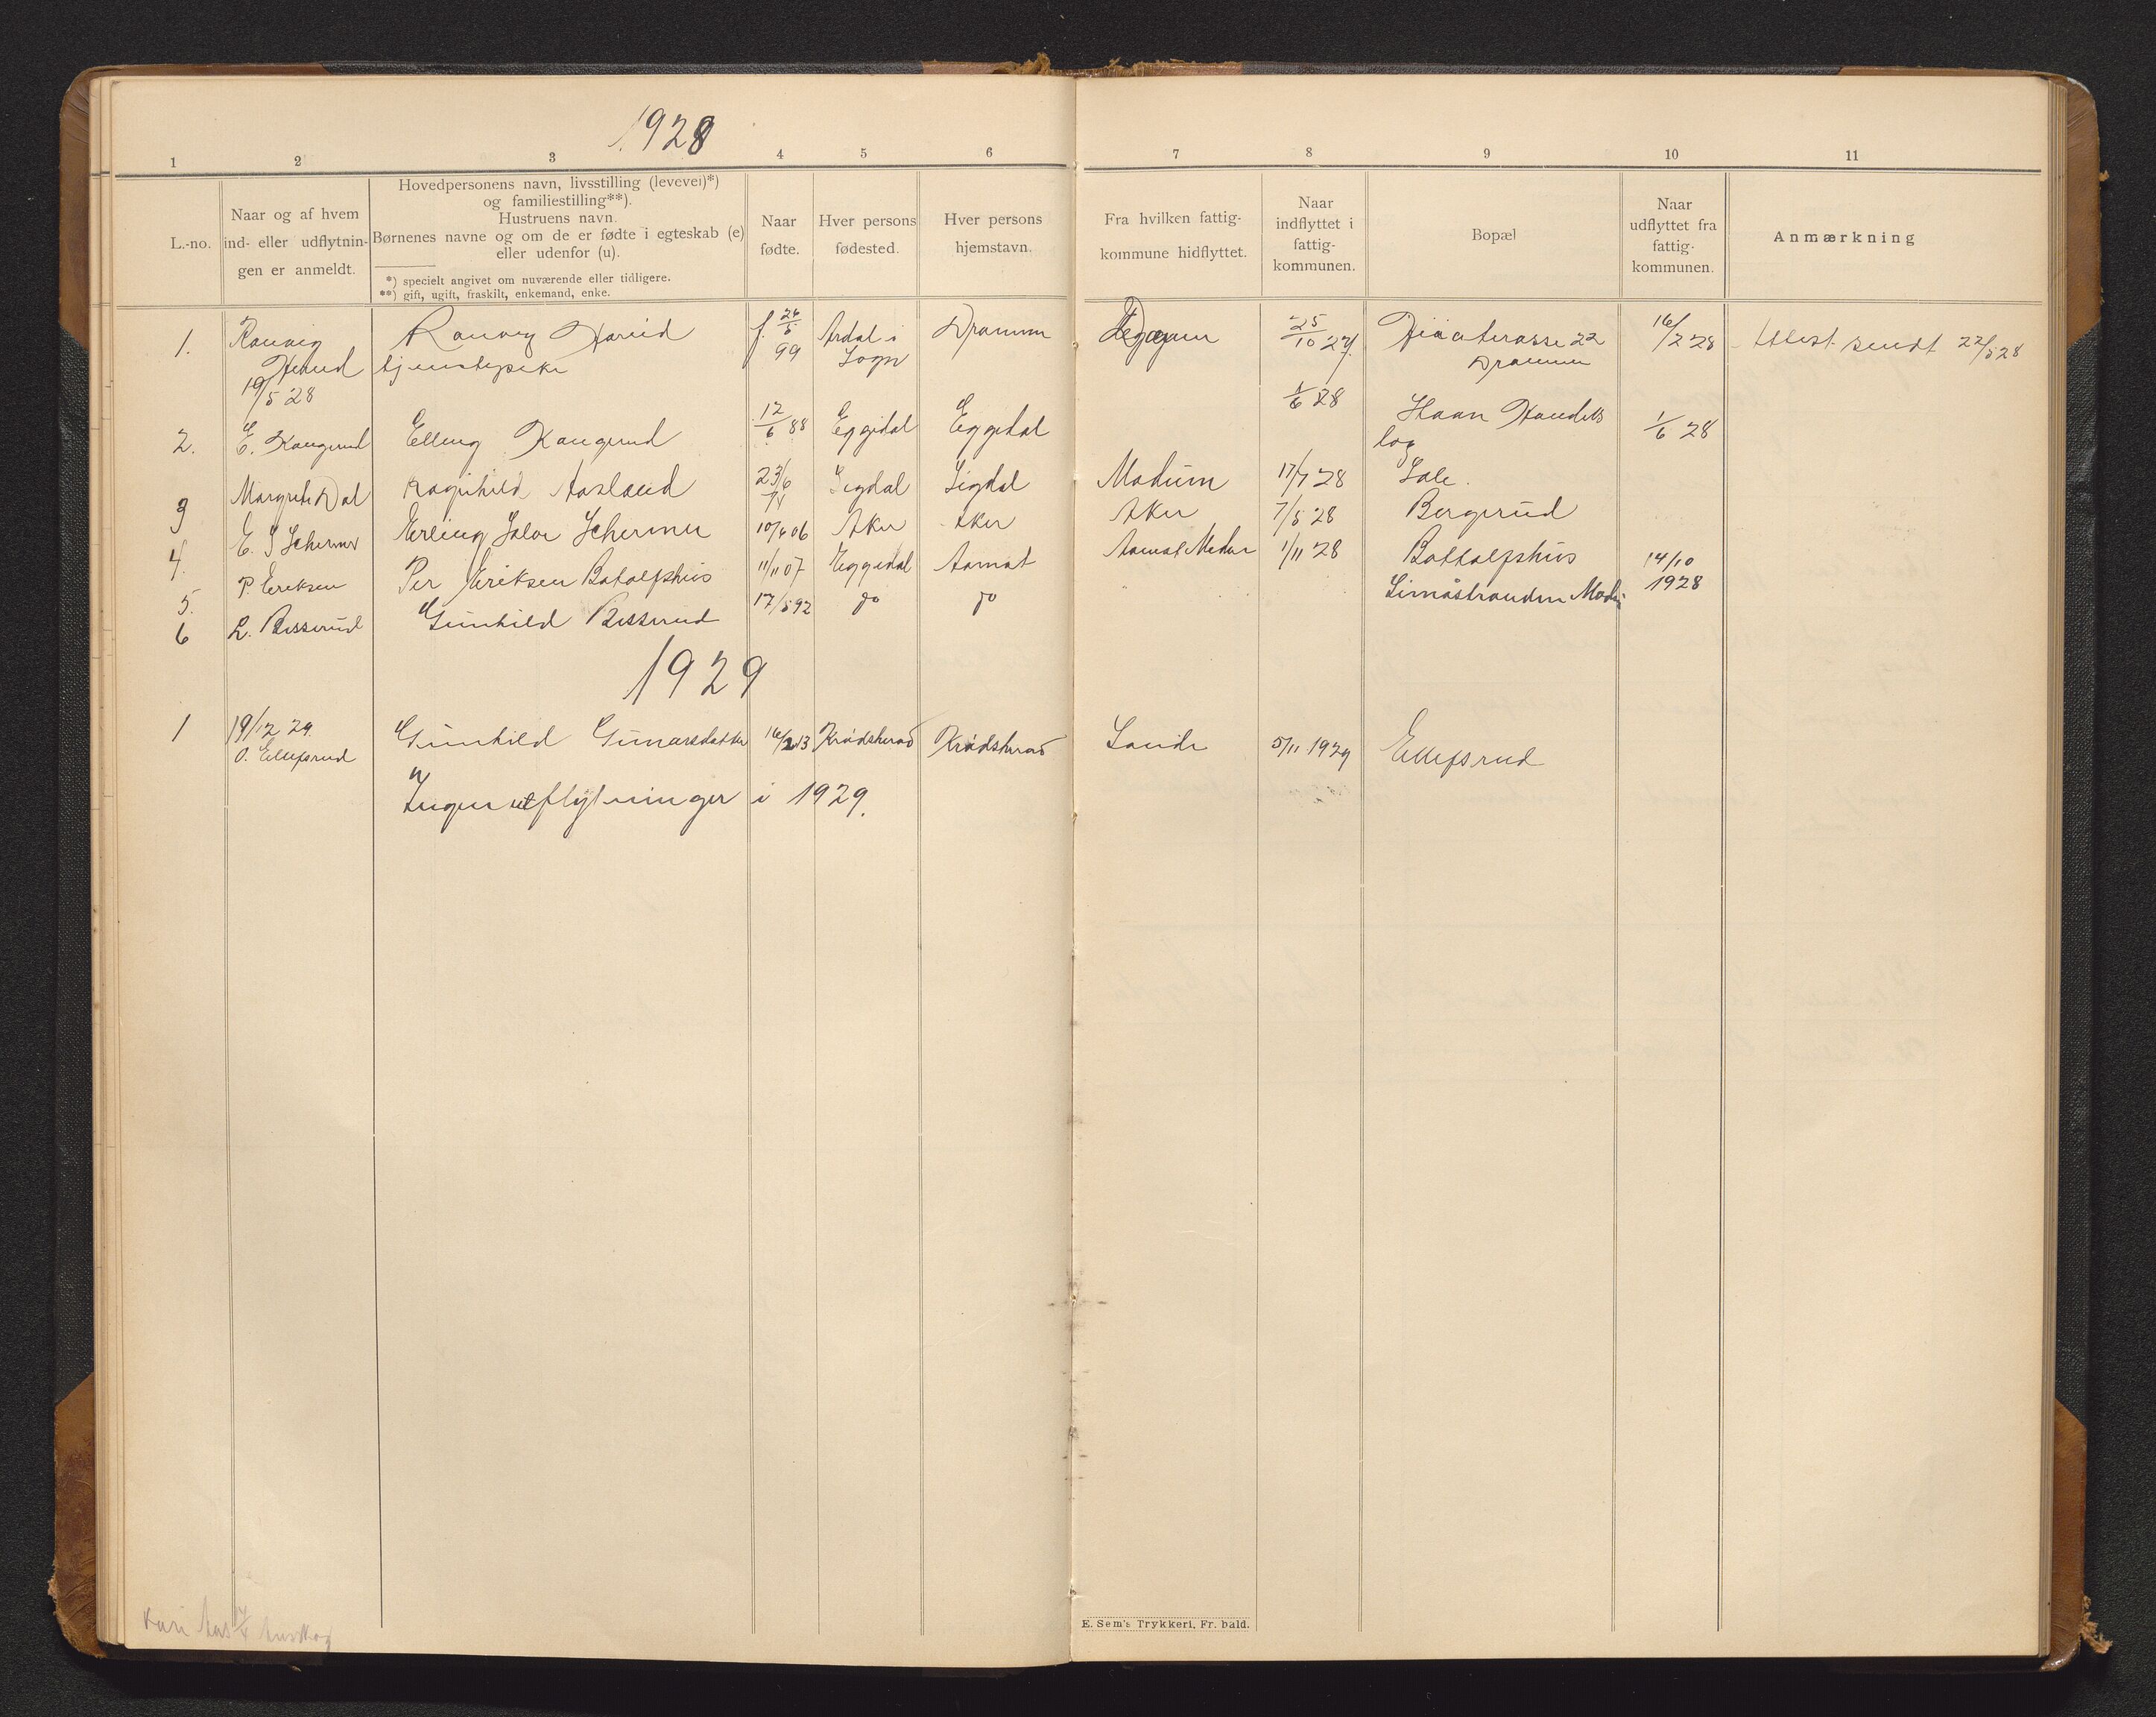 1928
1 2 3 4 5 6 7 8 9 10 11
L.-no.
Naar og af hvem
ind- eller udflytnin-
gen er anmeldt.
Hovedpersonens navn, livsstilling (levevei)*)
og familiestilling**).
Hustruens navn.
Børnenes navne og om de er fødte i egteskab (e)
eller udenfor (u).
*) specielt angivet om nuværende eller tidligere.
**) gift, ugift, fraskilt, enkemand, enke.
Naar
fødte.
Hver persons
fødested.
Hver persons
hjemstavn.
Fra hvilken fattig-
kommune hidflyttet.
Naar
indflyttet i
fattig-
kommunen.
Bopæl
Naar
udflyttet fra
fattig-
kommunen.
Anmærkning
1. Ranveig Ranveig Hareid f. 26/5 99 Ardal i Sogn Drammen 25/10 27 22 Drammen 16/2 28 sendt 22/5 28
tjenestepike
19/5 28
2. E. Kaugerud Elling Kaugerud 12/6 88 Eggedal Eggedal 1/6 28 Haan Handels
lag 1/6 28
3 Margrete Dal Ragnhild Aasland 23/6 74 Sigdal Sigdal Modum 17/7 28 Sole.
4. E. S Schermer Erling Schermer 10/4 06 Aker Aker Aker 7/5 28 Bergerud
5. P. Eriksen Per Eriksen Botolfshus 11/11 07 Eggedal Aamot Aamot Modum 1/11 28 Bottolfshus 14/10
6 L. Besserud Gunhild Besserud 17/5 92 do do Simåstranden Modum 1928
1929
1 19/12 29. Gunhild Gunarsdatter 16/2 13 Krødsherad Krødsherad Sande 5/11 1929 Ellefsrud
O. Ellefsrud
Ingen utflytninger i 1929.
Kari Aas
E. Sem's Trykkeri, Fr. hald.